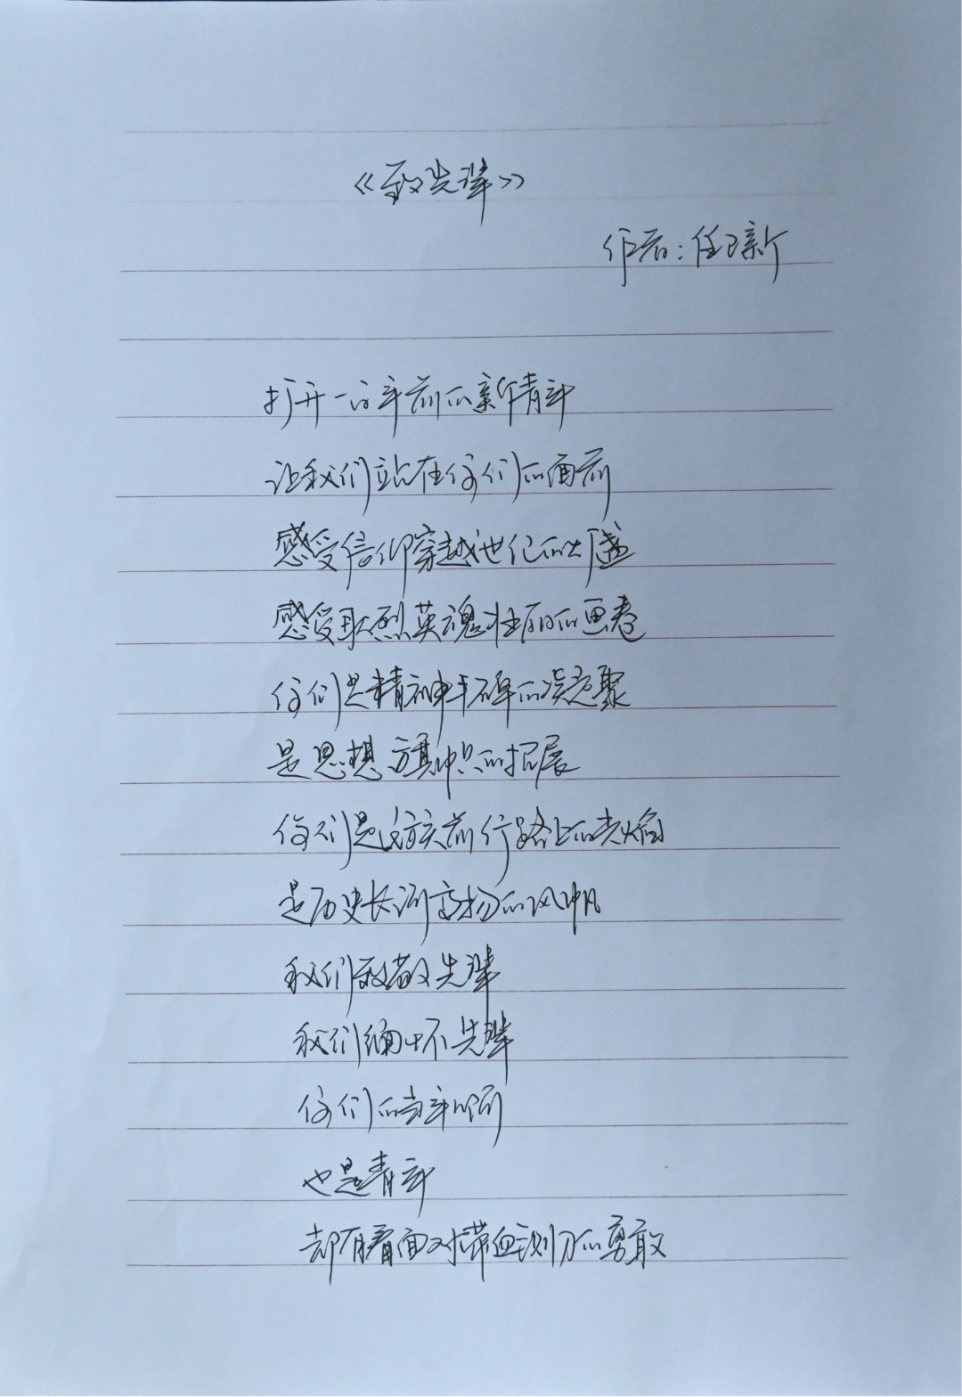 《致先辈》
作者：任卫新
打开一百年前的新青年
让我们站在你们的面前
感受信仰穿越世纪的
感受耿烈英魂壮丽的画卷
你们是精神丰碑的凝聚
是思想旗帜的招展
你们是民族前行路上的光焰
是历史长河高扬的风帆
我们致敬先辈
我们缅怀先辈
你们的当年啊
也是青年
却有着面对带血铡刀的勇敢